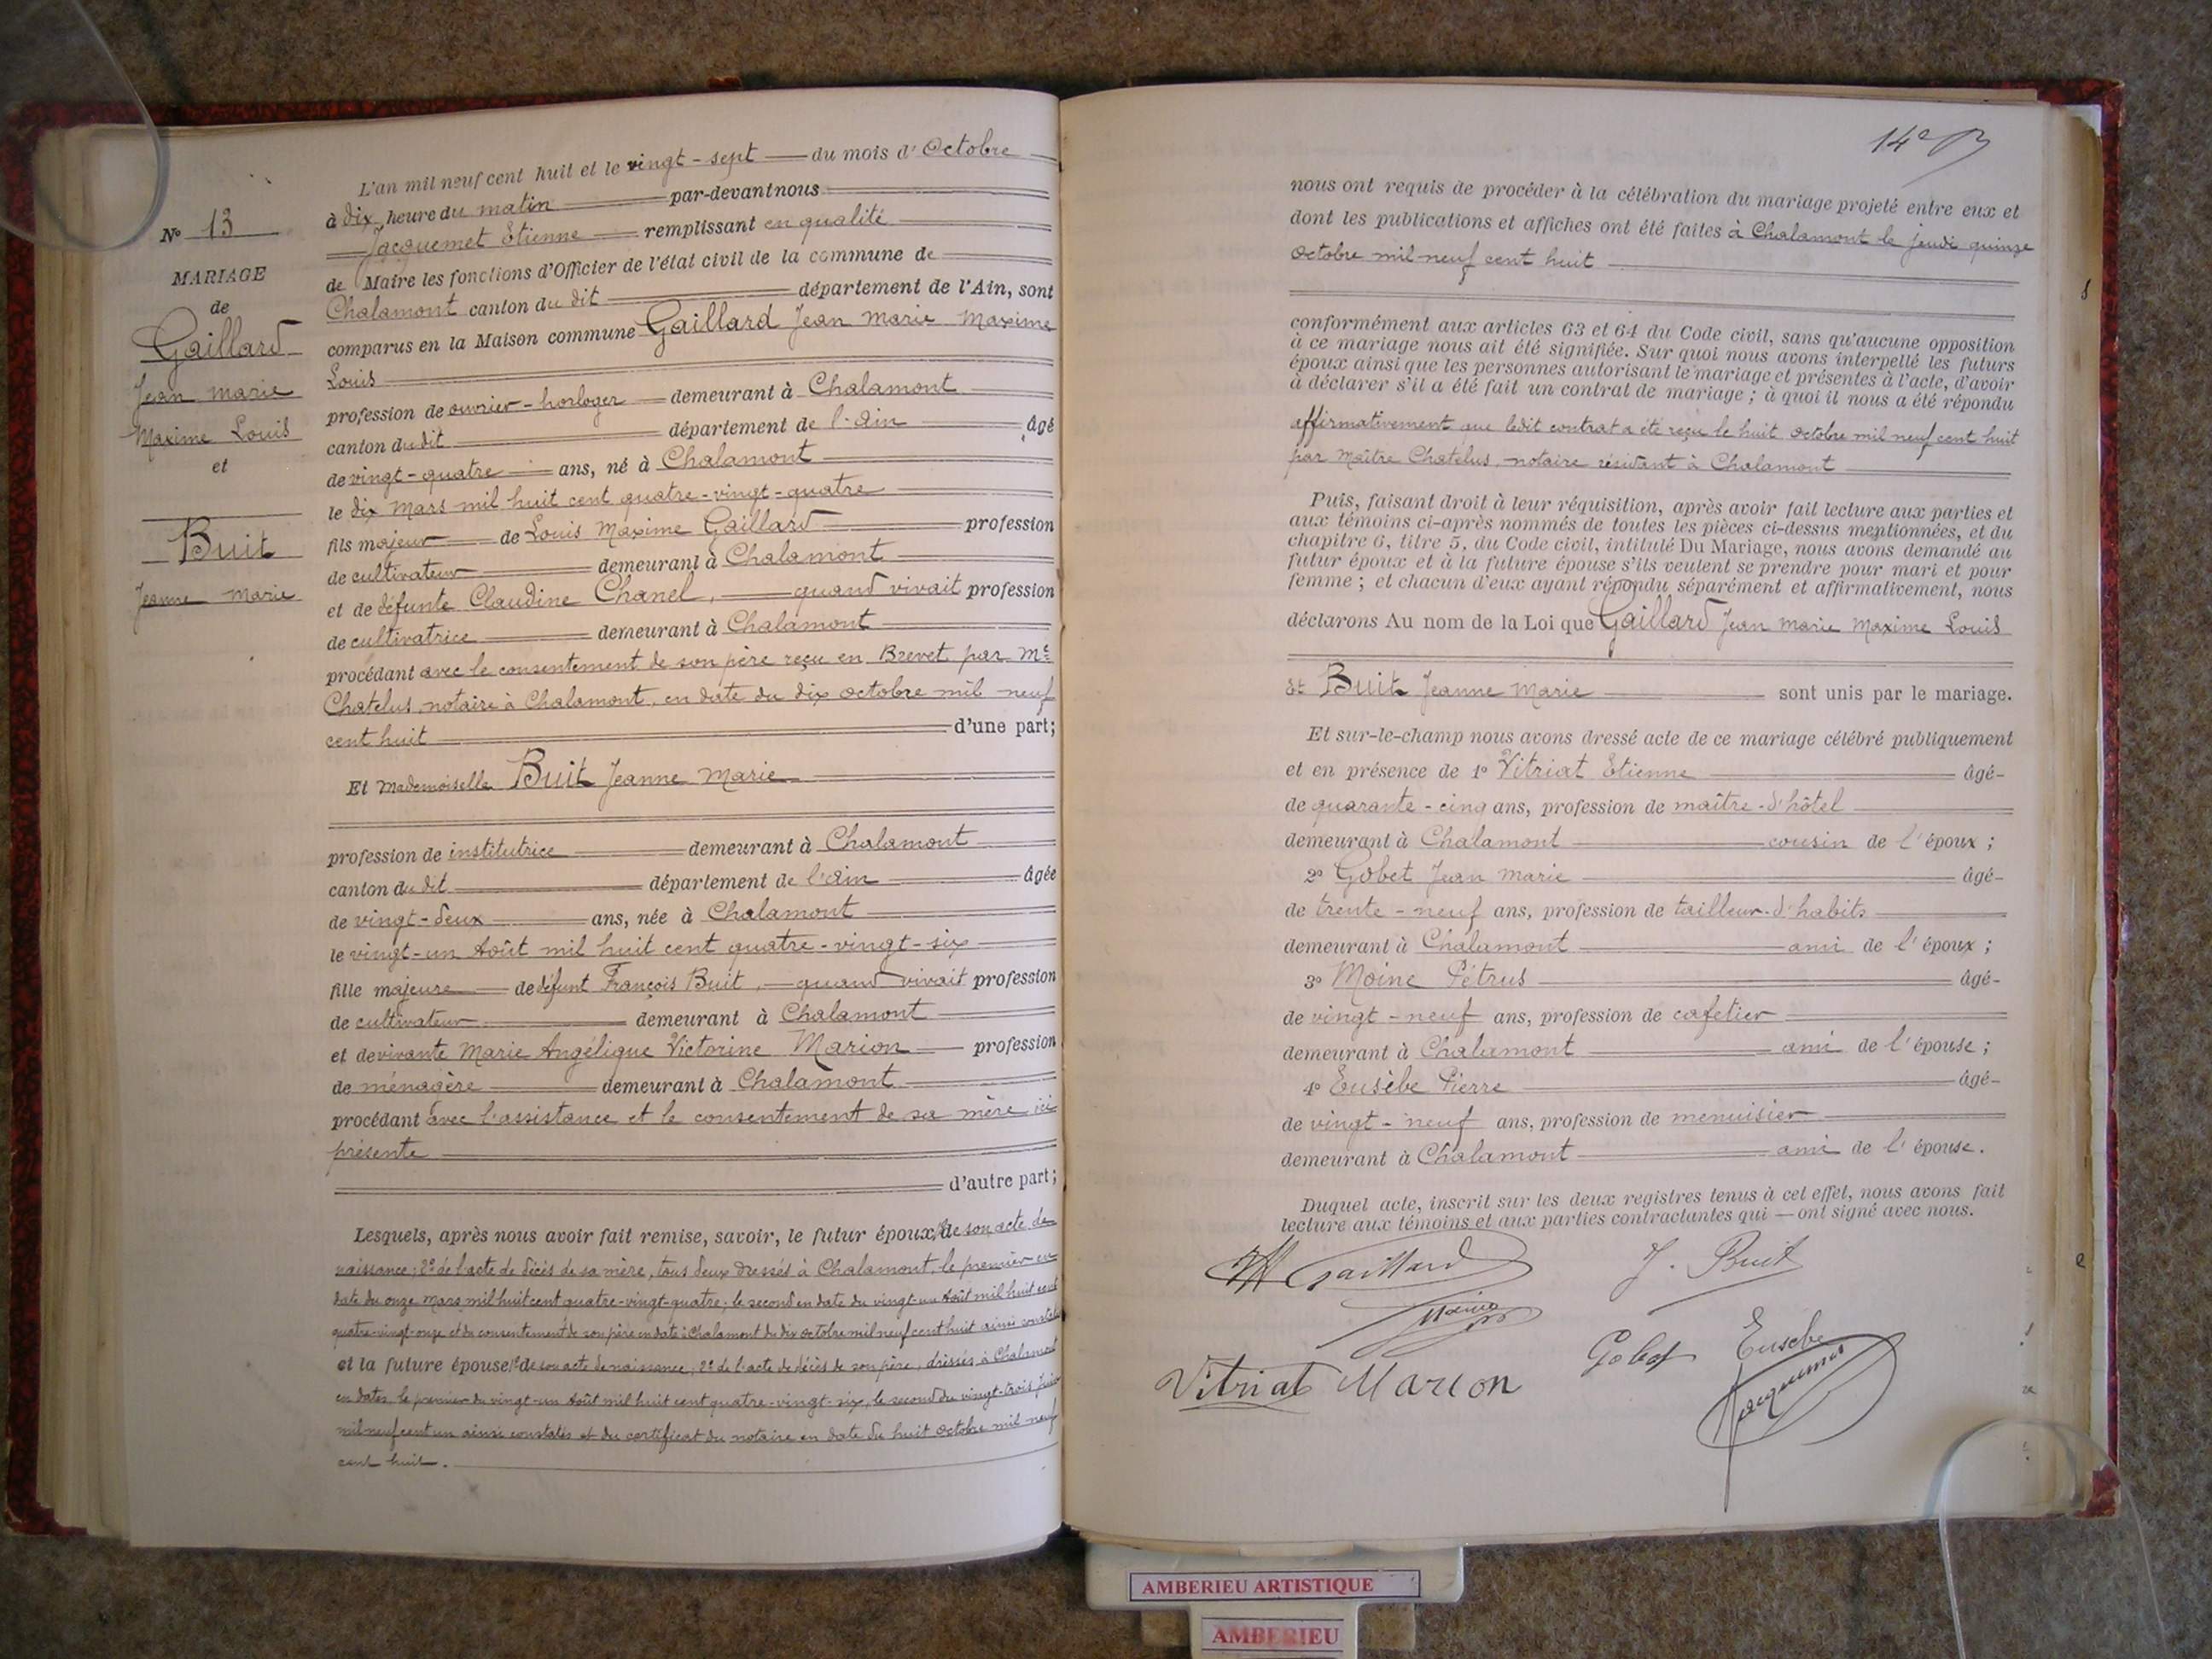 N° 13
MARIAGE
de
Gaillard
Jean Marie
Maxime Louis
et
Buit
Jeanne Marie
L'an mil neuf cent huit et le vingt-sept du mois d'Octobre
à dix heure du matin par-devant nous
Jacquemet Etienne remplissant en qualité
de Maire les fonctions d'Officier de l'état civil de la commune de
Chalamont canton du dit département de l'Ain, sont
comparus en la Maison commune Gaillard Jean Marie Maxime
Louis
profession de ouvrier-horloger demeurant à Chalamont
canton du dit département de l'Ain âgé
de vingt-quatre ans, né à Chalamont
le dix Mars mil huit cent quatre-vingt-quatre
fils majeur de Louis Maxime Gaillard profession
de cultivateur demeurant à Chalamont
et de défunte Claudine Chanel, quand vivait profession
de cultivatrice demeurant à Chalamont
procédant avec le consentement de son père reçu en Brevet par Me
Chatelus, notaire à Chalamont, en date du dix octobre mil neuf
cent huit d'une part;
Et Mademoiselle Buit Jeanne Marie
profession de institutrice demeurant à Chalamont
canton du dit département de l'Ain âgée
de vingt-deux ans, née à Chalamont
le vingt-un Août mil huit cent quatre-vingt-six
fille majeure de défunt François Buit, quand vivait profession
de cultivateur demeurant à Chalamont
et de vivante Marie Angélique Victorine Marion profession
de ménagère demeurant à Chalamont
procédant avec l'assistance et le consentement de sa mère ici
présente
d'autre part;
Lesquels, après nous avoir fait remise, savoir, le futur époux, 1° de son acte de
naissance; 2° de l'acte de décès de sa mère, tous deux dressés à Chalamont, le premier en
date du onze Mars mil huit cent quatre-vingt-quatre; le second en date du vingt-un Août mil huit cent
quatre-vingt-onze et du consentement de son père en date à Chalamont du dix octobre mil neuf cent huit ainsi constatés
et la future épouse, 1° de son acte de naissance; 2° de l'acte de décès de son père, dressés à Chalamont
en dates, le premier du vingt-un Août mil huit cent quatre-vingt-six, le second du vingt-trois Juin
mil neuf cent un ainsi constatés et du certificat du notaire en date du huit Octobre mil neuf
cent huit.
14e
nous ont requis de procéder à la célébration du mariage projeté entre eux et
dont les publications et affiches ont été faites à Chalamont le jeudi quinze
octobre mil neuf cent huit
conformément aux articles 63 et 64 du Code civil, sans qu'aucune opposition
à ce mariage nous ait été signifiée. Sur quoi nous avons interpellé les futurs
époux ainsi que les personnes autorisant le mariage et présentes à l'acte, d'avoir
à déclarer s'il a été fait un contrat de mariage; à quoi il nous a été répondu
affirmativement que ledit contrat a été reçu le huit octobre mil neuf cent huit
par Maître Chatelus, notaire résidant à Chalamont
Puis, faisant droit à leur réquisition, après avoir fait lecture aux parties et
aux témoins ci-après nommés de toutes les pièces ci-dessus mentionnées, et du
chapitre 6, titre 5, du Code civil, intitulé Du Mariage, nous avons demandé au
futur époux et à la future épouse s'ils veulent se prendre pour mari et pour
femme; et chacun d'eux ayant répondu séparément et affirmativement, nous
déclarons Au nom de la Loi que Gaillard Jean Marie Maxime Louis
et Buit Jeanne Marie sont unis par le mariage.
Et sur-le-champ nous avons dressé acte de ce mariage célébré publiquement
et en présence de 1° Vitriat Etienne âgé
de quarante-cinq ans, profession de maître-d'hôtel
demeurant à Chalamont cousin de l'époux;
2° Gobet Jean Marie âgé
de trente-neuf ans, profession de tailleur-d'habits
demeurant à Chalamont ami de l'époux;
3° Moine Pétrus âgé
de vingt-neuf ans, profession de cafetier
demeurant à Chalamont ami de l'épouse;
4° Eusèbe Pierre âgé
de vingt-neuf ans, profession de menuisier
demeurant à Chalamont ami de l'épouse.
Duquel acte, inscrit sur les deux registres tenus à cet effet, nous avons fait
lecture aux témoins et aux parties contractantes qui ont signé avec nous.
Gaillard J. Buit
Moine
Gobet Eusebe
Vitriat Marion Jacquemet
AMBERIEU ARTISTIQUE
AMBERIEU